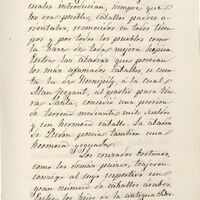 cuales introducian, siempre, que
les era posible, caballos padres o-
rientales, reconocidos en todo tiem-
po y por todos los pueblos como
la base de toda mejora hípica.
Entre las abadias que poseian
los mas afamados caballos, se cuen-
ta la de , á la cual
Alan Fergant, al partir para Tier-
ra Santa, concedió una porcion
de terreno mediante mil sueldos
y un hermoso caballo. La abadia
de poseia tambien una
hermosa yeguada.
Los cruzados bretones,
como los demas pueblos, trajeron
consigo al suyo respectivo un
gran número de caballos árabes.
Entre los hijos de la antigua Bre-